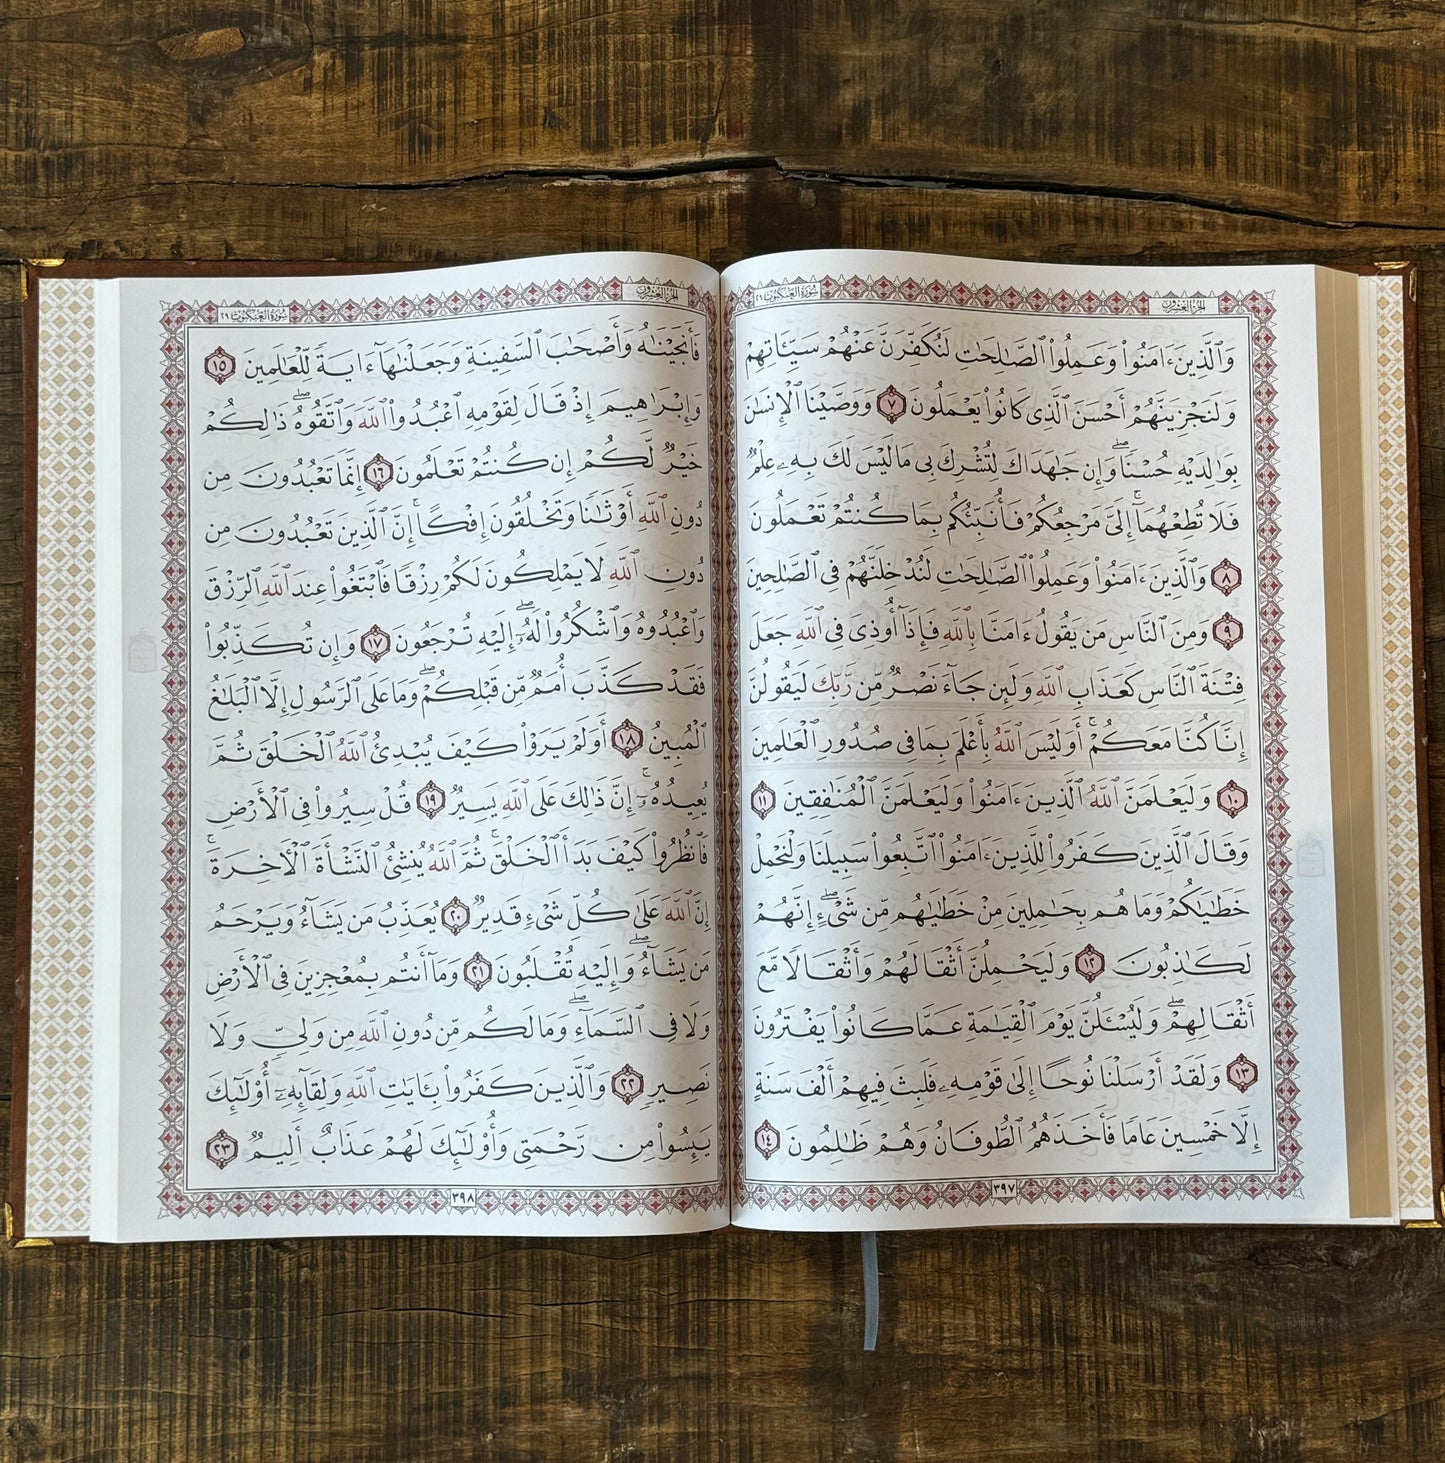 سُورَةُ العَنكَبُوتِ ٢٩
الجُزْءُ العِشْرُونَ
وَٱلَّذِينَ ءَامَنُوا۟ وَعَمِلُوا۟ ٱلصَّـٰلِحَـٰتِ لَنُكَفِّرَنَّ عَنْهُمْ سَيِّـَٔاتِهِمْ
وَلَنَجْزِيَنَّهُمْ أَحْسَنَ ٱلَّذِى كَانُوا۟ يَعْمَلُونَ ٧ وَوَصَّيْنَا ٱلْإِنسَـٰنَ
بِوَٰلِدَيْهِ حُسْنًۭا ۖ وَإِن جَـٰهَدَاكَ لِتُشْرِكَ بِى مَا لَيْسَ لَكَ بِهِۦ عِلْمٌۭ
فَلَا تُطِعْهُمَآ ۚ إِلَىَّ مَرْجِعُكُمْ فَأُنَبِّئُكُم بِمَا كُنتُمْ تَعْمَلُونَ
٨ وَٱلَّذِينَ ءَامَنُوا۟ وَعَمِلُوا۟ ٱلصَّـٰلِحَـٰتِ لَنُدْخِلَنَّهُمْ فِى ٱلصَّـٰلِحِينَ
٩ وَمِنَ ٱلنَّاسِ مَن يَقُولُ ءَامَنَّا بِٱللَّهِ فَإِذَآ أُوذِىَ فِى ٱللَّهِ جَعَلَ
فِتْنَةَ ٱلنَّاسِ كَعَذَابِ ٱللَّهِ وَلَئِن جَآءَ نَصْرٌۭ مِّن رَّبِّكَ لَيَقُولُنَّ
إِنَّا كُنَّا مَعَكُمْ ۚ أَوَلَيْسَ ٱللَّهُ بِأَعْلَمَ بِمَا فِى صُدُورِ ٱلْعَـٰلَمِينَ
١٠ وَلَيَعْلَمَنَّ ٱللَّهُ ٱلَّذِينَ ءَامَنُوا۟ وَلَيَعْلَمَنَّ ٱلْمُنَـٰفِقِينَ ١١
وَقَالَ ٱلَّذِينَ كَفَرُوا۟ لِلَّذِينَ ءَامَنُوا۟ ٱتَّبِعُوا۟ سَبِيلَنَا وَلْنَحْمِلْ
خَطَـٰيَـٰكُمْ وَمَا هُم بِحَـٰمِلِينَ مِنْ خَطَـٰيَـٰهُم مِّن شَىْءٍ ۖ إِنَّهُمْ
لَكَـٰذِبُونَ ١٢ وَلَيَحْمِلُنَّ أَثْقَالَهُمْ وَأَثْقَالًۭا مَّعَ
أَثْقَالِهِمْ ۖ وَلَيُسْـَٔلُنَّ يَوْمَ ٱلْقِيَـٰمَةِ عَمَّا كَانُوا۟ يَفْتَرُونَ
١٣ وَلَقَدْ أَرْسَلْنَا نُوحًا إِلَىٰ قَوْمِهِۦ فَلَبِثَ فِيهِمْ أَلْفَ سَنَةٍ
إِلَّا خَمْسِينَ عَامًۭا فَأَخَذَهُمُ ٱلطُّوفَانُ وَهُمْ ظَـٰلِمُونَ ١٤
٣٩٧
الجُزْءُ العِشْرُونَ
سُورَةُ العَنكَبُوتِ ٢٩
فَأَنجَيْنَـٰهُ وَأَصْحَـٰبَ ٱلسَّفِينَةِ وَجَعَلْنَـٰهَآ ءَايَةًۭ لِّلْعَـٰلَمِينَ ١٥
وَإِبْرَٰهِيمَ إِذْ قَالَ لِقَوْمِهِ ٱعْبُدُوا۟ ٱللَّهَ وَٱتَّقُوهُ ۖ ذَٰلِكُمْ
خَيْرٌۭ لَّكُمْ إِن كُنتُمْ تَعْلَمُونَ ١٦ إِنَّمَا تَعْبُدُونَ مِن
دُونِ ٱللَّهِ أَوْثَـٰنًۭا وَتَخْلُقُونَ إِفْكًا ۚ إِنَّ ٱلَّذِينَ تَعْبُدُونَ مِن
دُونِ ٱللَّهِ لَا يَمْلِكُونَ لَكُمْ رِزْقًۭا فَٱبْتَغُوا۟ عِندَ ٱللَّهِ ٱلرِّزْقَ
وَٱعْبُدُوهُ وَٱشْكُرُوا۟ لَهُۥٓ ۖ إِلَيْهِ تُرْجَعُونَ ١٧ وَإِن تُكَذِّبُوا۟
فَقَدْ كَذَّبَ أُمَمٌۭ مِّن قَبْلِكُمْ ۖ وَمَا عَلَى ٱلرَّسُولِ إِلَّا ٱلْبَلَـٰغُ
ٱلْمُبِينُ ١٨ أَوَلَمْ يَرَوْا۟ كَيْفَ يُبْدِئُ ٱللَّهُ ٱلْخَلْقَ ثُمَّ
يُعِيدُهُۥٓ ۚ إِنَّ ذَٰلِكَ عَلَى ٱللَّهِ يَسِيرٌۭ ١٩ قُلْ سِيرُوا۟ فِى ٱلْأَرْضِ
فَٱنظُرُوا۟ كَيْفَ بَدَأَ ٱلْخَلْقَ ۚ ثُمَّ ٱللَّهُ يُنشِئُ ٱلنَّشْأَةَ ٱلْـَٔاخِرَةَ ۚ
إِنَّ ٱللَّهَ عَلَىٰ كُلِّ شَىْءٍۢ قَدِيرٌۭ ٢٠ يُعَذِّبُ مَن يَشَآءُ وَيَرْحَمُ
مَن يَشَآءُ ۖ وَإِلَيْهِ تُقْلَبُونَ ٢١ وَمَآ أَنتُم بِمُعْجِزِينَ فِى ٱلْأَرْضِ
وَلَا فِى ٱلسَّمَآءِ ۖ وَمَا لَكُم مِّن دُونِ ٱللَّهِ مِن وَلِىٍّۢ وَلَا
نَصِيرٍۢ ٢٢ وَٱلَّذِينَ كَفَرُوا۟ بِـَٔايَـٰتِ ٱللَّهِ وَلِقَآئِهِۦٓ أُو۟لَـٰٓئِكَ
يَئِسُوا۟ مِن رَّحْمَتِى وَأُو۟لَـٰٓئِكَ لَهُمْ عَذَابٌ أَلِيمٌۭ ٢٣
٣٩٨